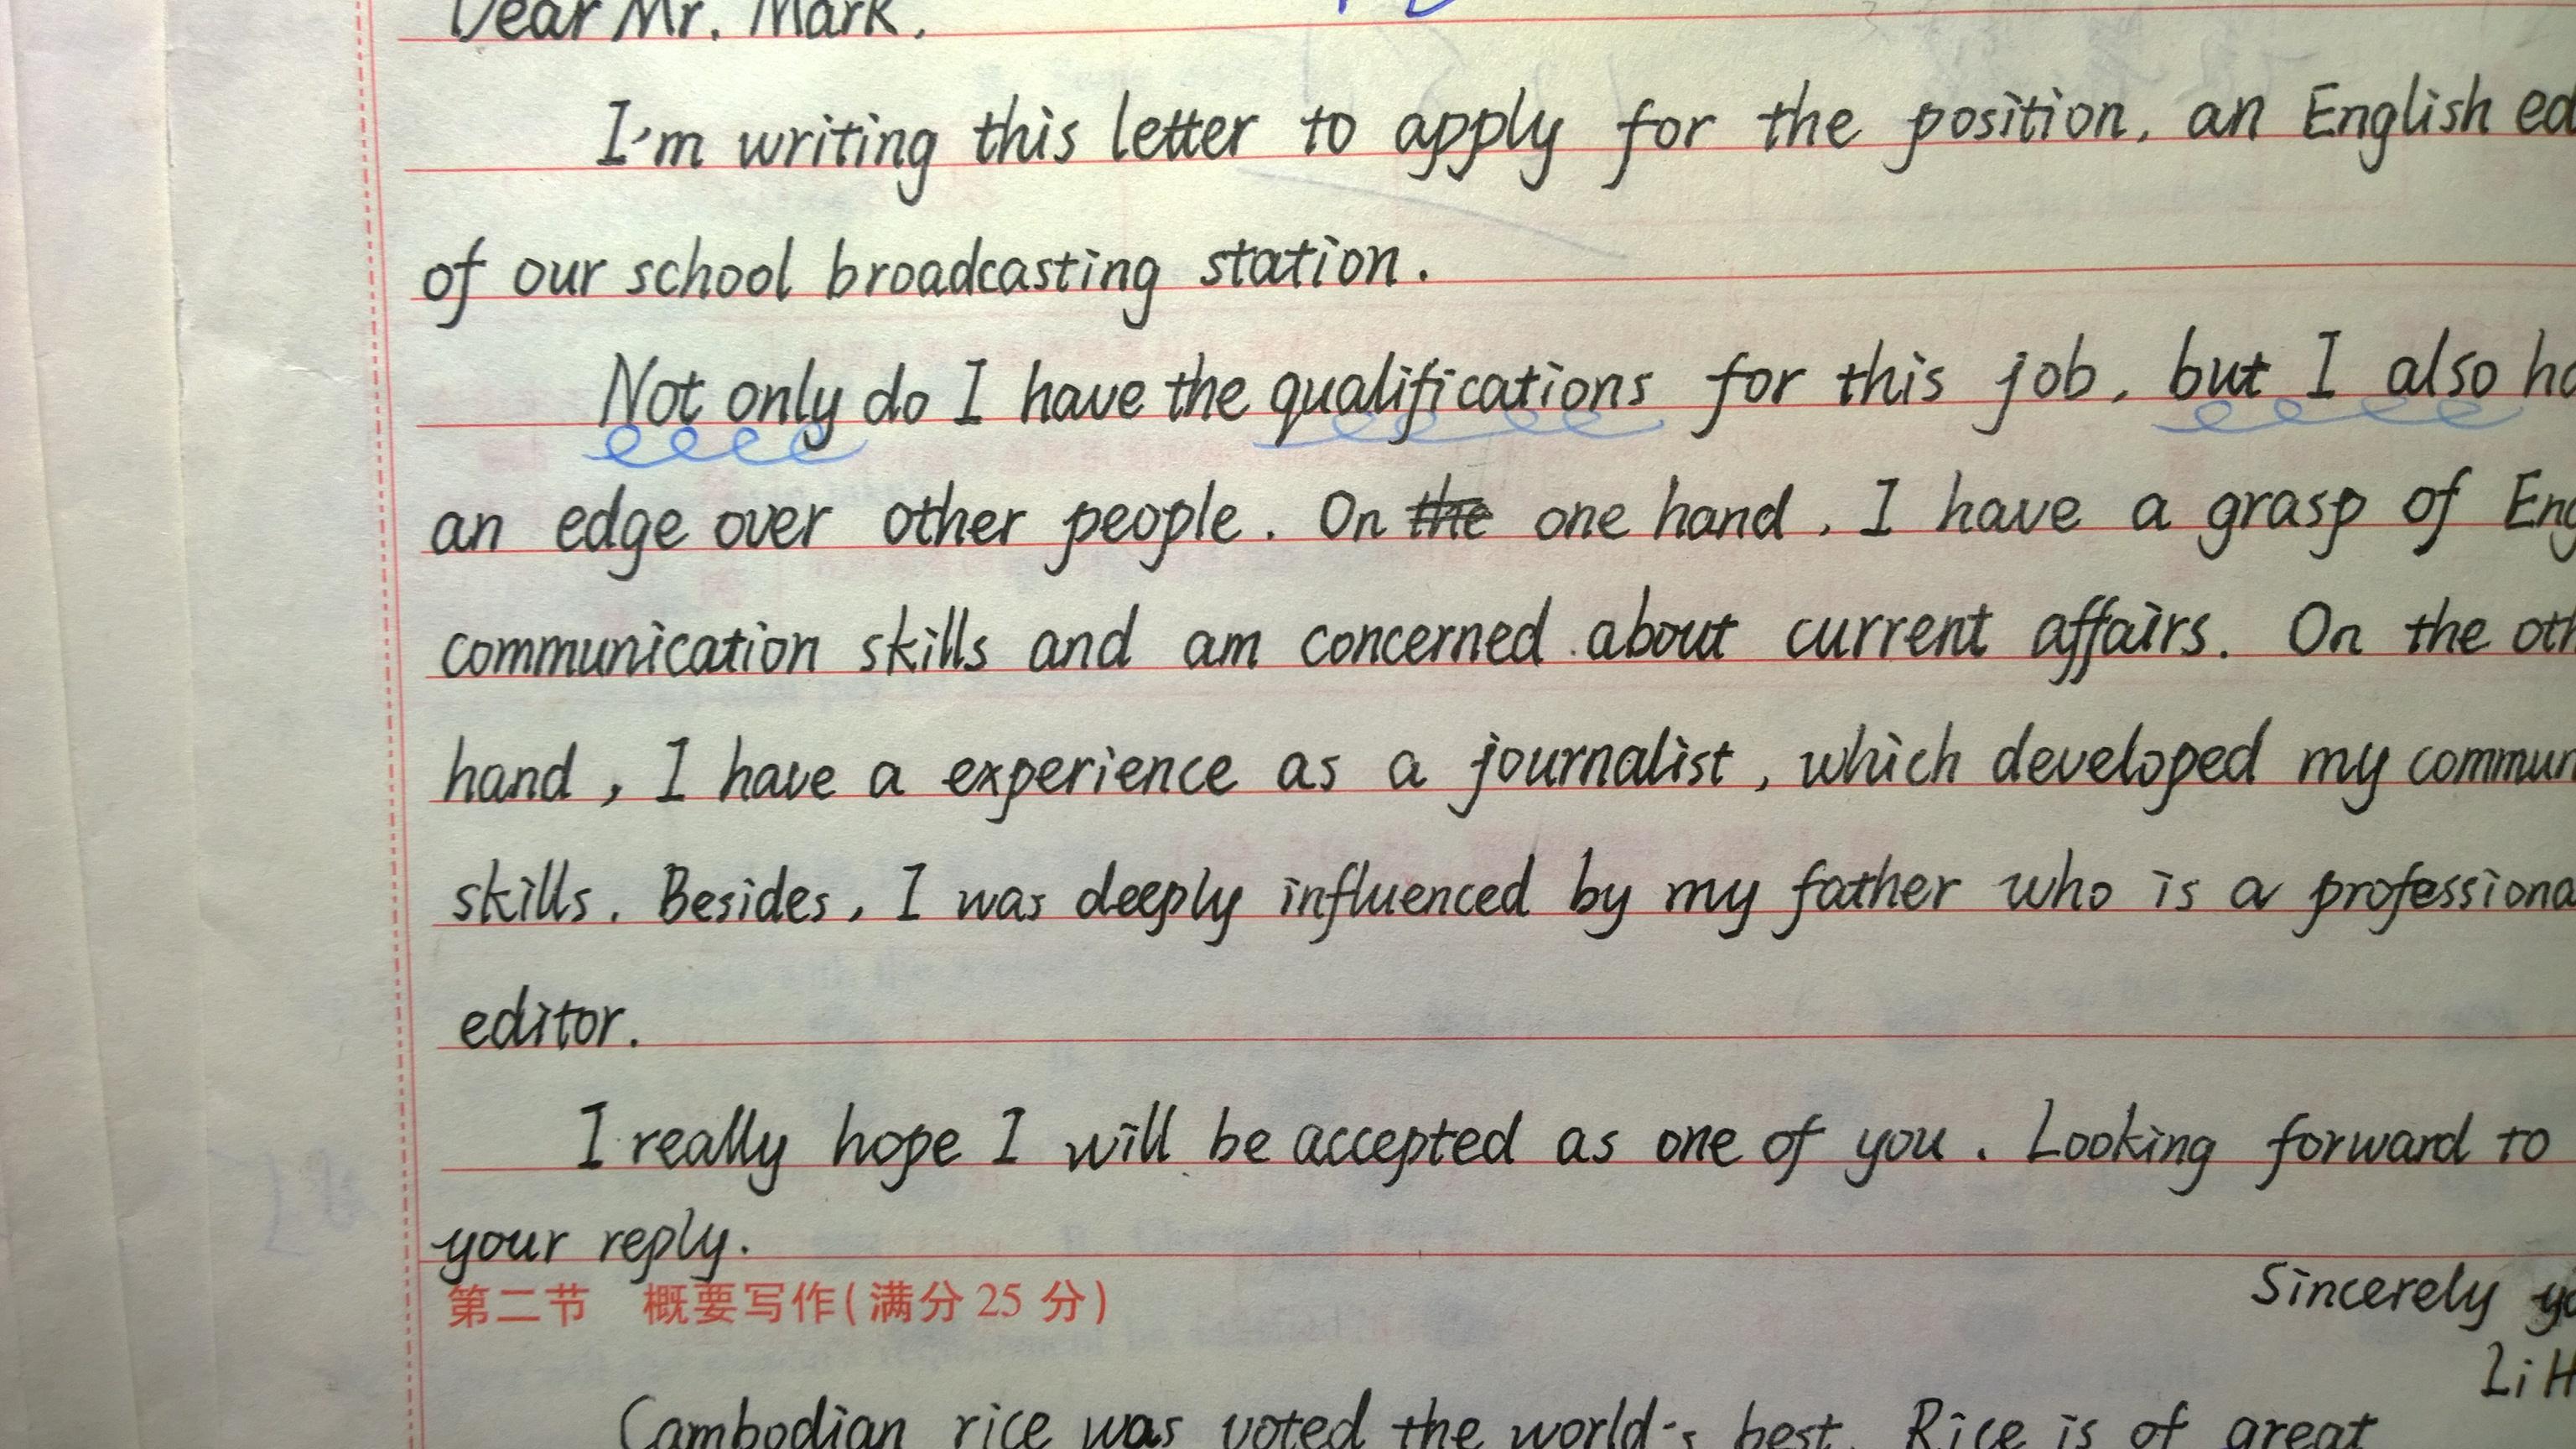 Dear Mr. Mark.
I'm writing this letter to apply for the position, an English ed
of our school broadcasting station.
Not only do I have the qualifications for this job, but I also ha
an edge over other people. On the one hand, I have a grasp of Eng
communication skills and am concerned about current affairs. On the oth
hand, I have a experience as a journalist, which developed my commun
skills. Besides, I was deeply influenced by my father who is a professiona
editor.
I really hope I will be accepted as one of you. Looking forward to
your reply.
第二节 概要写作(满分 25 分)
Sincerely yo
Li H
Cambodian rice was voted the world's best. Rice is of great